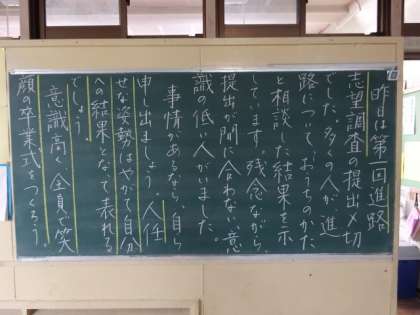 昨日は第一回進路
志望調査の提出〆切
でした。多くの人が、進
路について、おうちのかた
と相談した結果を示
しています。残念ながら、
提出が間に合わない意
識の低い人がいました。
事情があるなら、自ら
申し出ましょう。人任
せな姿勢はやがて自分
への結果となって表れる
でしょう。
意識高く、全員で笑
顔の卒業式をつくろう。